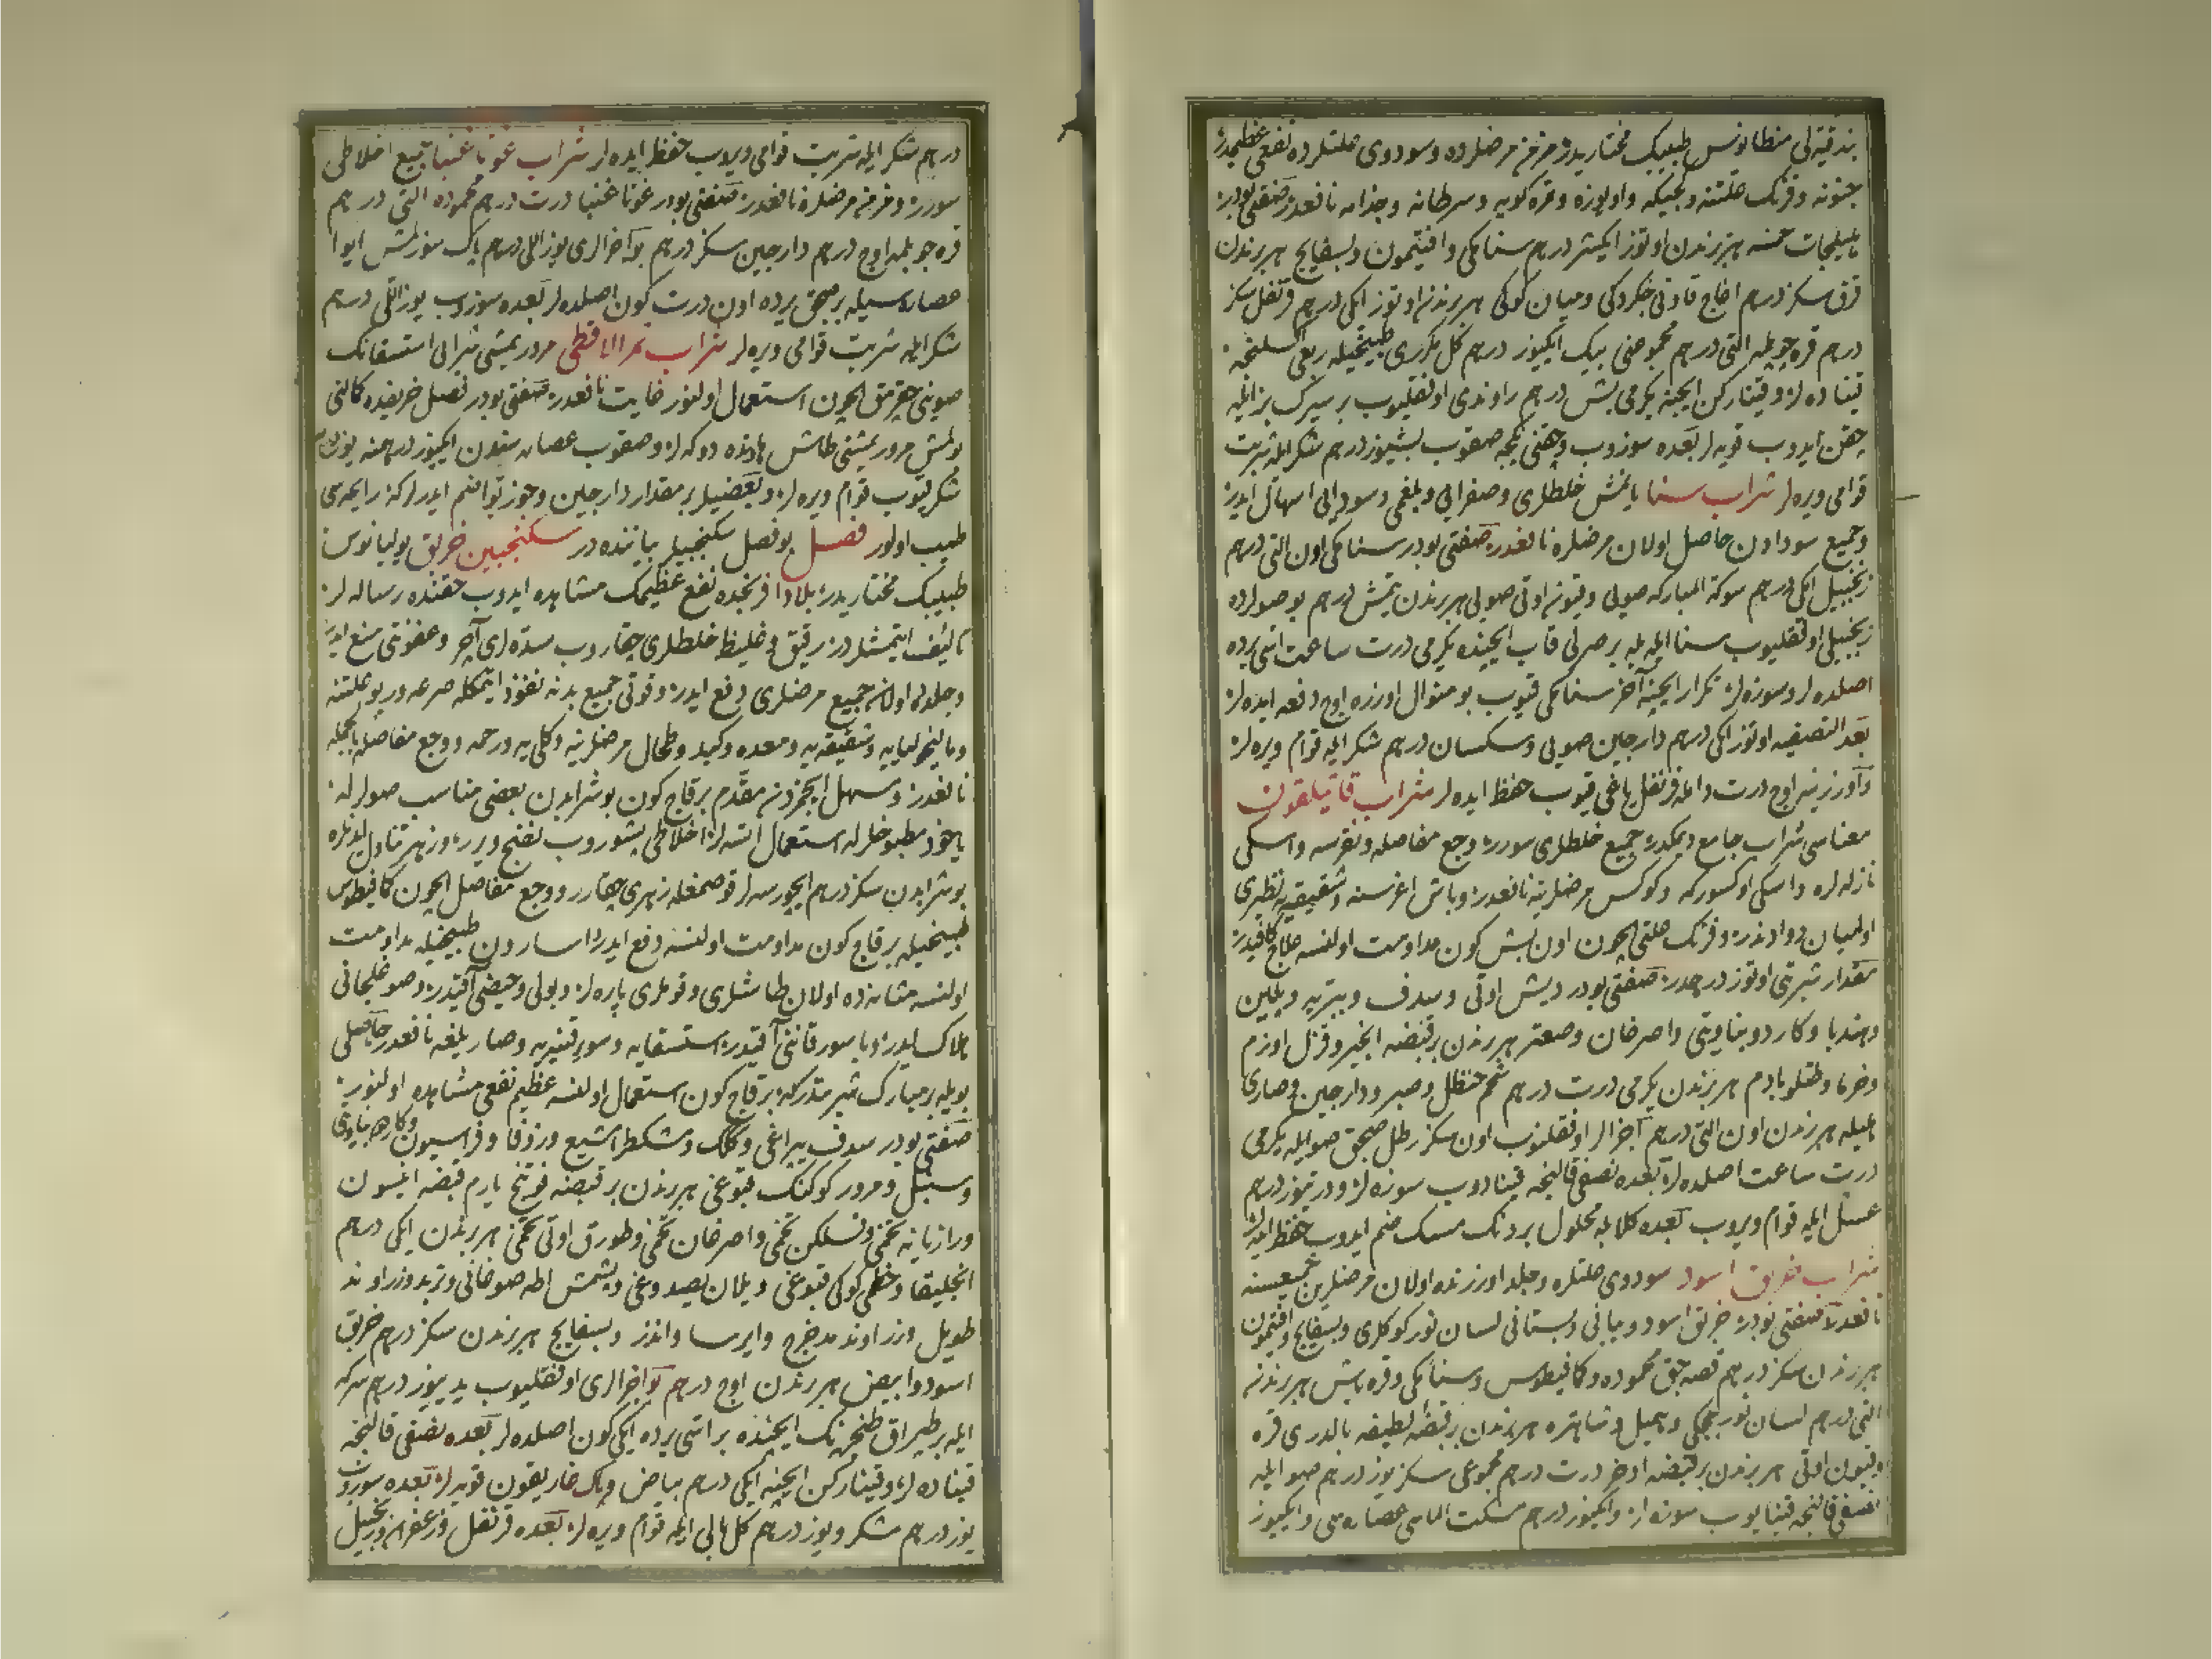 بندقیه‌لی منطانوس طبیبک مختاریدر مزمن مرضلرده و سوداوی علتلرده نفعی عظیمدر
جنونه و فرنک علتنه و بجیکه و اویوزه و قره کویه و سرطانه و جذامه نافعدر صنعتی بودر
هلیلجات خمسه هر برندن اوتوز ایکیشر درهم سنامکی و افتیمون و بسفایج هر برندن
قرق سکز درهم اغاج قاونی چکردکی و میان کوکی هر برندن اوتوز ایکی درهم قرنفل سکز
درهم قره چوپلمه التی درهم مجموعنی بیک ایکیوز درهم کل مکرری طبیخیله ربعی اکسلنجه
قیناده‌لر و قینارکن ایچنه یکرمی بش درهم راوندی اوفقلیوب بر سیرک بز ایله
چقن ایدوب قویه‌لر بعده سوزوب و چقنی نیجه صقوب بشیوز درهم شکر ایله شربت
قوامی ویره‌لر شراب سنا یانمش خلطلری و صفرایی و بلغمی و سودایی اسهال ایدر
و جمیع سودادن حاصل اولان مرضلره نافعدر صنعتی بودر سنامکی اون التی درهم
زنجبیل ایکی درهم شوکة المبارکه صویی و قیون اوتی صویی هر برندن یتمش درهم بو صولرده
زنجبیلی اوفقلیوب سنا ایله بر صرلی قاب ایچنده یکرمی درت ساعت اسی یرده
اصلده‌لر و سوزه‌لر تکرار ایچینه آخر سنامکی قیوب بو منوال اوزره اوچ دفعه ایده‌لر
بعد التصفیه اوتوز ایکی درهم دارچین صویی و سکسان درهم شکر ایله قوام ویره‌لر
و اوزرینه اوچ درت دامله قرنفل یاغی قیوب حفظ ایده‌لر شراب قاتیلقون
معناسی شراب جامع دیمکدر جمیع خلطلری سورر وجع مفاصله و نقرسه و اسکی
نازله‌لره و اسکی اوکسورکه و کوکس مرضلرینه نافعدر و باش اغریسنه و شقیقه‌یه نظیری
اولمیان دوادندر و فرنک علتی ایچون اون بش کون مداومت اولنسه علاج کافیدر
مقدار شربتی اوتوز درهمدر صنعتی بودر دیش اوتی و سدف و بیبریه و یلمین
و هندبا و کاردوبناویتی و اصرغان و صعتر هر برندن بر قبضه انجیر و قزل اوزم
و خرما و طتلو بادم هر برندن یکرمی درت درهم شحم حنظل و صبر و دارچین و صاری
هلیله هر برندن اون التی درهم اجزالر اوفقلنوب اون سکز رطل صیجق صو ایله یکرمی
درت ساعت اصلده‌لر بعده نصفی قالنجه قینادوب سوزه‌لر و درتیوز درهم
عسل ایله قوام ویروب بعده کلابله محلول بر دنک مسک ضم ایدوب حفظ ایده‌لر
شراب خربق اسود سوداوی علتلره و جلد اوزرنده اولان مرضلرین جمیعسنه
نافعدر صنعتی بودر خربق اسود و یبانی و بستانی لسان ثور کوکلری و بسفایج و افتیمون
هر برندن سکز درهم قصبه‌جق محموده و کمافیطوس و سنامکی و قره‌باش هر برندن
التی درهم لسان ثور چچکی و همیل و شاهتره هر برندن بر قبضه لطیفه بالدری قره
و قیون اوتی هر برندن بر قبضه اذخر درت درهم مجموعی سکز یوز درهم صو ایله
نصفی قالنجه قینایوب سوزه‌لر و ایکیوز درهم مسکت الماسی عصاره‌سی و ایکیوز
درهم شکر ایله شربت قوامی ویروب حفظ ایده‌لر شراب غوتاغنبا جمیع اخلاطی
سورر و مزمن مرضلره نافعدر صنعتی بودر غوتاغنبا درت درهم محموده التی درهم
قره چوپلمه اوچ درهم دارچین سکز درهم بو اجزالری یوز اللی درهم پاک سوزلمش ایوا
عصاره‌سیله بر صیجق یرده اون درت کون اصلده‌لر بعده سوزوب یوز اللی درهم
شکر ایله شربت قوامی ویره‌لر شراب ثمر الاقطی مرور یمشی شرابی استسقانک
صوینی چقرمق ایچون استعمال اولنور غایت نافعدر صنعتی بودر فصل خریفده کالنی
بولمش مرور یمشنی طاش هاونده دوکه‌لر و صقوب عصاره‌سندن ایکیوز درهمنه یوز درهم
شکر قیوب قوام ویره‌لر و بعضیلر بر مقدار دارچین و جوز بوا ضم ایدرلر که رایحه‌سی
طیب اولور فصل بو فصل سکنجبینلر بیاننده‌در سکنجبین خربق یولیانوس
طبیبک مختاریدر بلاد افرنجده نفع عظیمک مشاهده ایدوب حقنده رساله‌لر
تألیف ایتمشلردر رقیق و غلیظ خلطلری چقاروب سده‌لری آچر و عفونتی منع ایدر
و جلدده اولان جمیع مرضلری دفع ایدر و قوتی جمیع بدنه نفوذ ایتمکله صرعه و ربو علتنه
و مالیخولیایه و شقیقه‌یه و معده و کبد و طحال مرضلرینه و کلی‌یه و رحمه و وجع مفاصله بالجمله
نافعدر و مسهل ایچمزدن مقدم بر قاچ کون بو شرابدن بعضی مناسب صولرله
یاخود مطبوخلرله استعمال اتسه‌لر اخلاطی پشوروب نضج ویرر و زهر تناول ایدنلره
بو شرابدن سکز درهم ایچورسه‌لر قوصمغله زهری چقارر و وجع مفاصل ایچون کمافیطوس
طبیخیله بر قاچ کون مداومت اولنسه دفع ایدر و اسارون طبیخیله مداومت
اولنسه مثانه‌ده اولان طاشلری و قوملری پاره‌لر و بولی و حیضی آقیدر و صوغلجانی
هلاک ایدر و باسور قاننی آقیدر استسقایه و سوء قنیه‌یه و صاریلغه نافعدر حاصلی
بویله بر مبارک شربتدر که بر قاچ کون استعمال اولنسه عظیم نفعی مشاهده اولنور
صنعتی بودر سدف یپراغی و ککک و مشکطرا مشیع و زوفا و فراسیون و کاردوبناوی
و سنبل و مرور کوکنک قبوغی هر برندن بر قبضه فوتنج یارم قبضه انیسون
و رازیانه تخمی و فسلکن تخمی و اصرغان تخمی و طورق اوتی تخمی هر برندن ایکی درهم
انجلیقا و خطمی کوکی قبوغی و یلان یصدوغی و پشمش اطه صوغانی و تربد و زراوند
طویل و زراوند مدحرج و ایرسا و اندز و بسفایج هر برندن سکز درهم خربق
اسود و ابیض هر برندن اوچ درهم بو اجزالری اوفقلیوب یدیوز درهم سرکه
ایله بر طپراق طنجره‌نک ایچنده بر اسی یرده ایکی کون اصلده‌لر بعده نصفی قالنجه
قیناده‌لر و قینارکن ایچنه ایکی درهم بیاض و پاک غاریقون قویه‌لر بعده سوزوب
یوز درهم شکر و یوز درهم کل بالی ایله قوام ویره‌لر بعده قرنفل و زعفران و زنجبیل